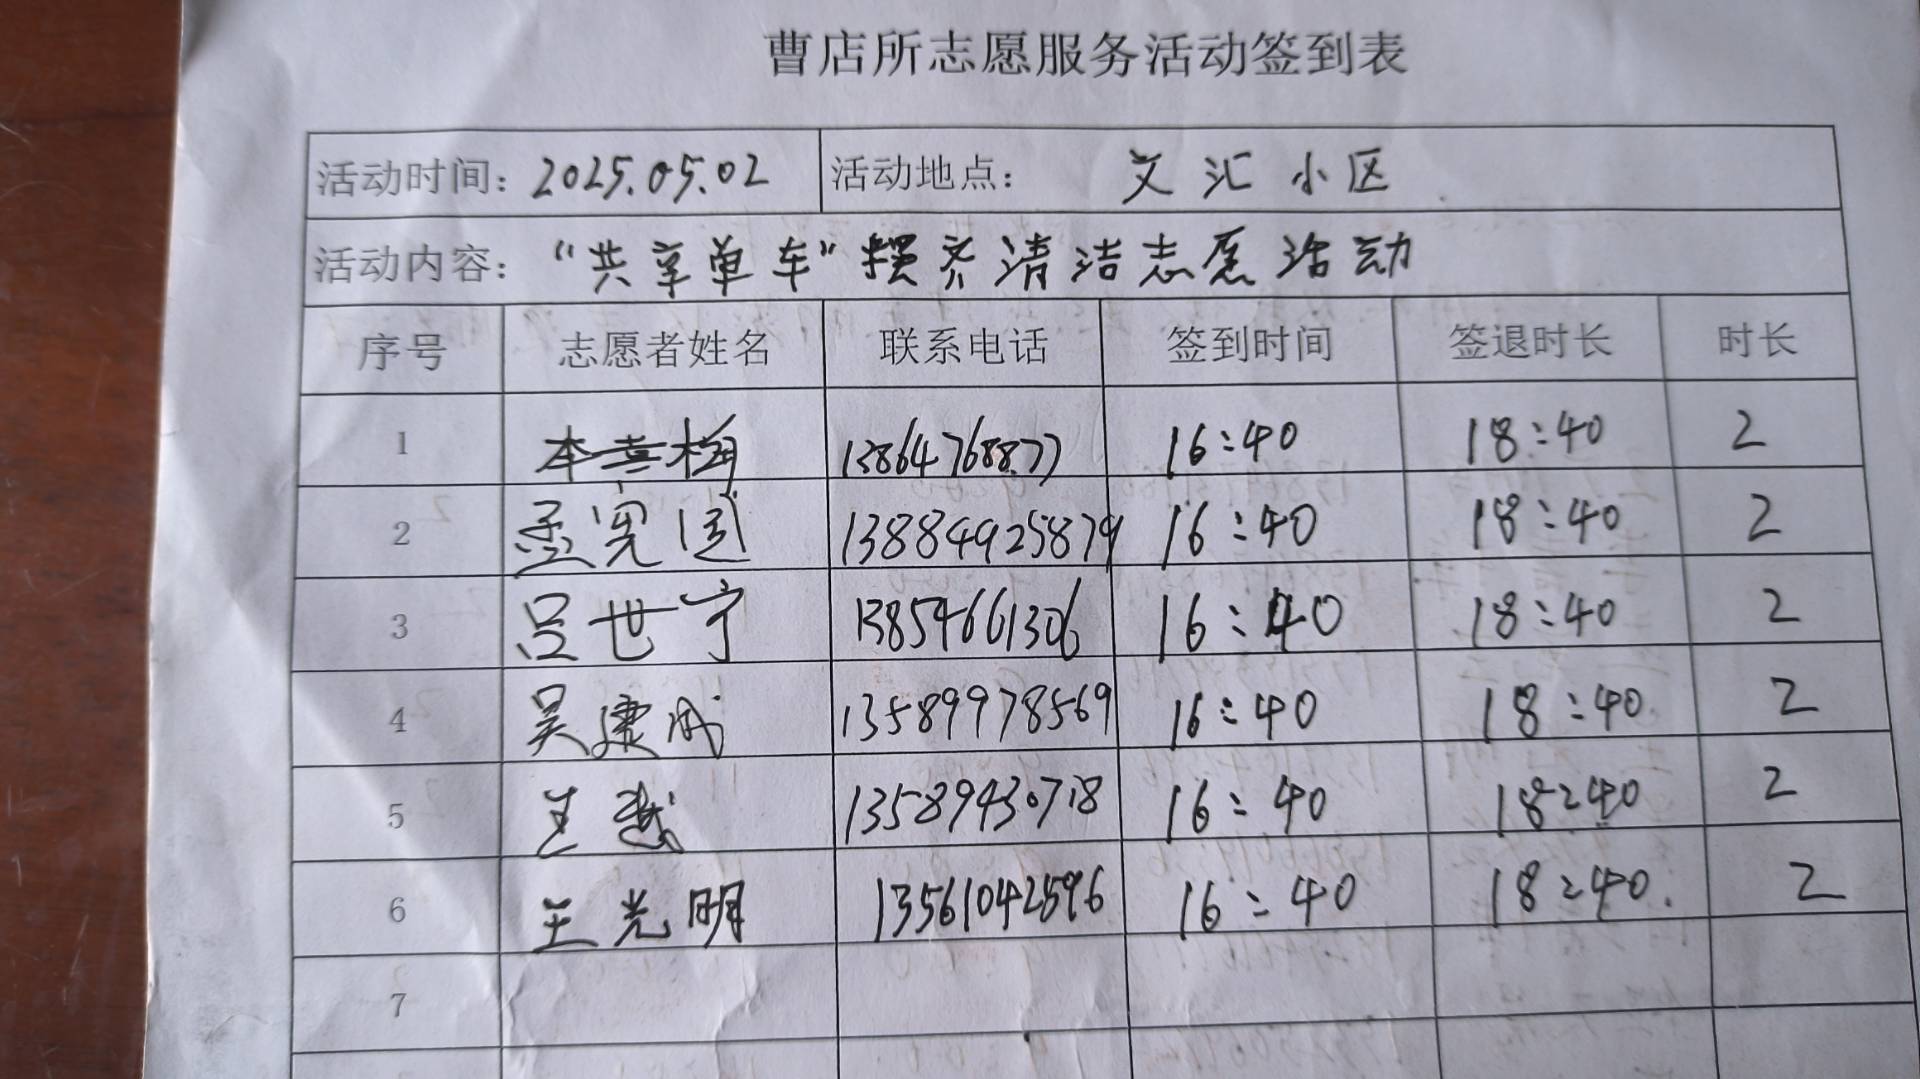 曹店所志愿服务活动签到表
活动时间: 2025.05.02 活动地点: 文汇小区
活动内容: “共享单车”摆齐清洁志愿活动
序号 志愿者姓名 联系电话 签到时间 签退时长 时长
1 13864768877 16:40 18:40 2
2 孟宪国 13884992587 16:40 18:40 2
3 吕世宁 13854661306 16:40 18:40 2
4 吴建成 13589978569 16:40 18:40 2
5 王越 13589430718 16:40 18:40 2
6 王光明 13561042596 16:40 18:40. 2
7